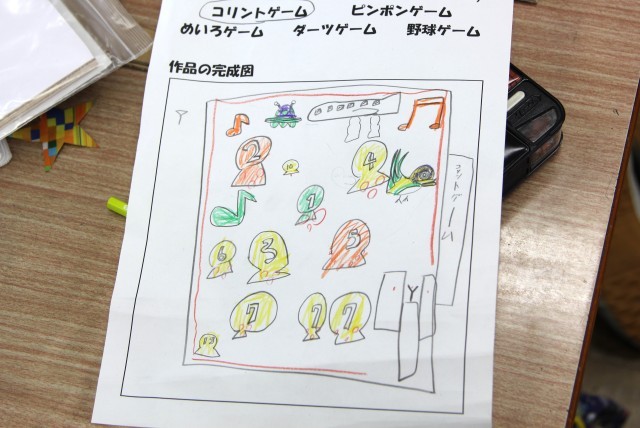 コリントゲーム ピンポンゲーム
めいろゲーム ダーツゲーム 野球ゲーム
作品の完成図
2
10
4
1
コリントゲーム
6
3
5
7
7
7
Y